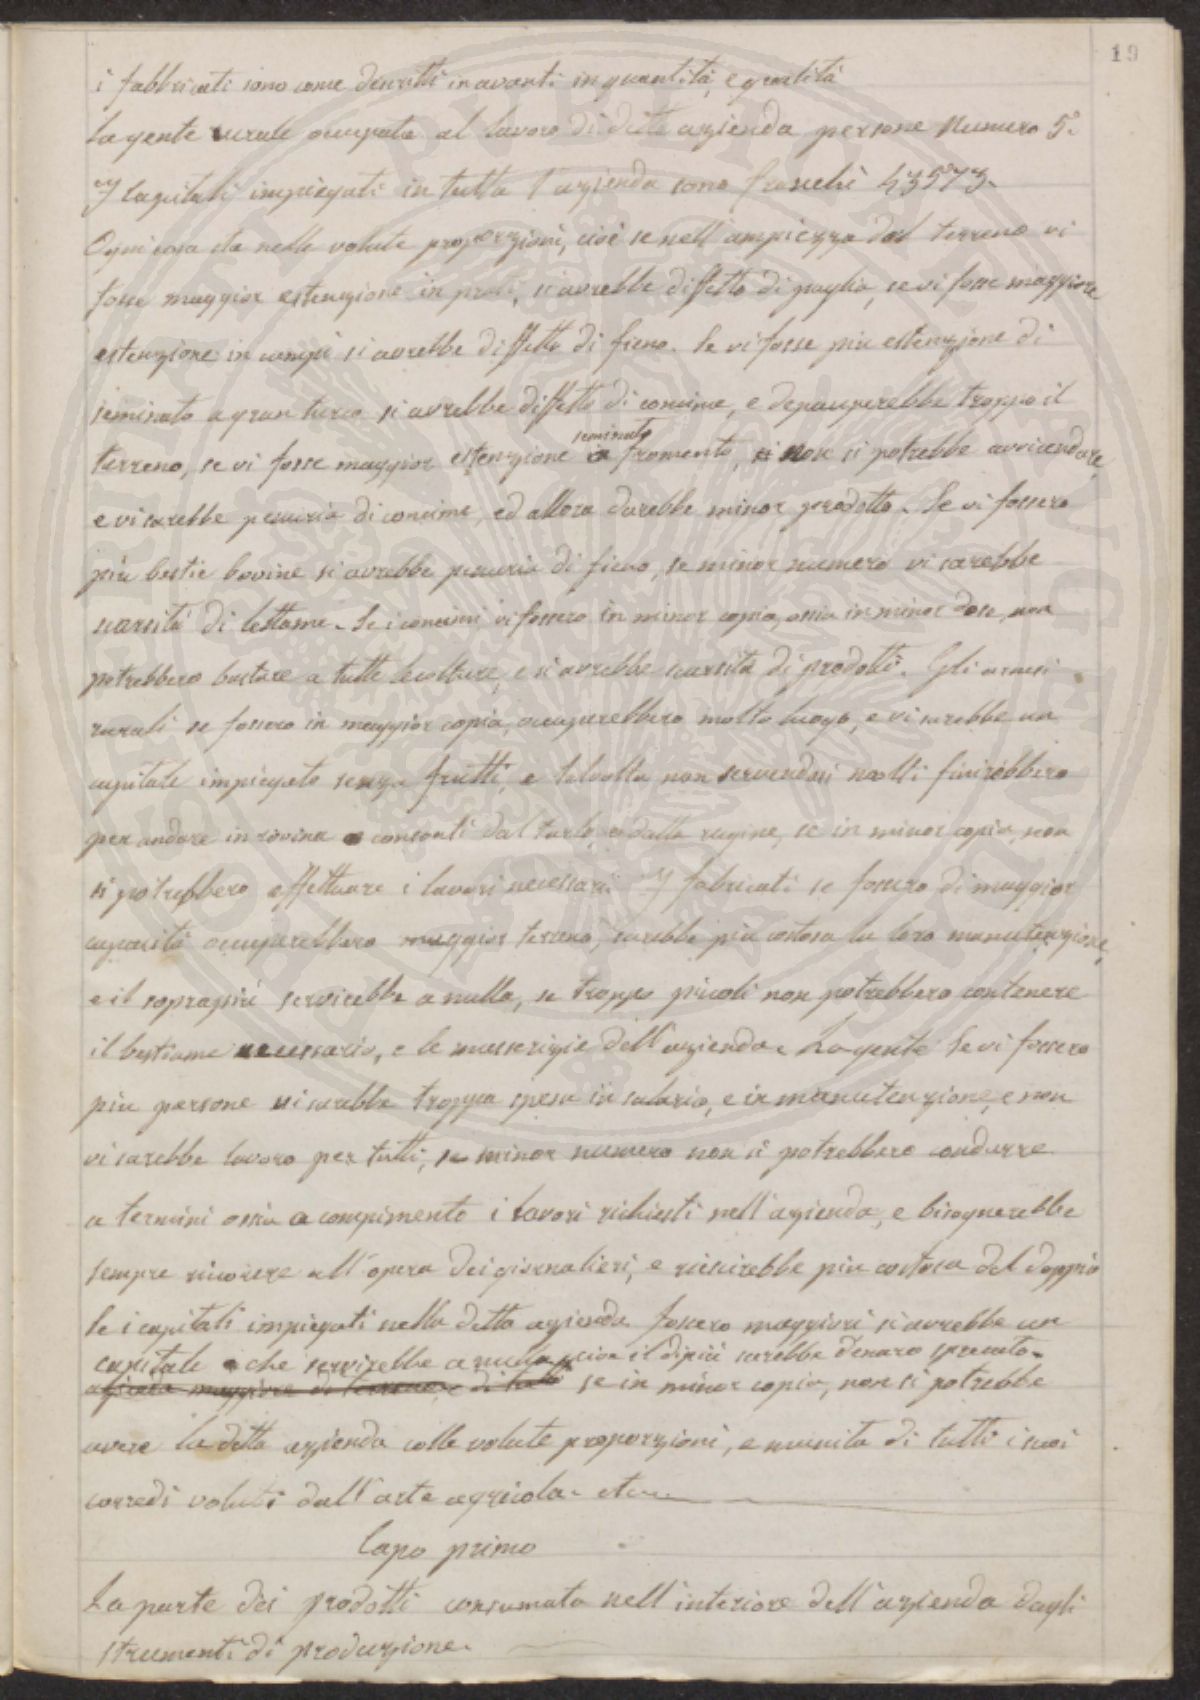 19
i fabbricati sono come descritti in avanti in quantità, e qualità
La gente rurale occupata al lavoro di detta azienda persone Numero 5.
I capitali impiegati in tutta l'azienda sono franchi 43573.
Ogni cosa sta nelle volute proporzioni, cioè se nell'ampiezza del terreno vi
fosse maggior estenzione in prati, si avrebbe diffetto di paglia, se vi fosse maggiore
estenzione in campi si avrebbe diffetto di fieno. Se vi fosse più estenzione di
seminato a gran turco si avrebbe diffetto di concime, e depauperebbe troppo il
seminato
terreno, se vi fosse maggior estenzione a fromento, non si potrebbe avvicendare,
e vi sarebbe penuria di concime, ed allora darebbe minor prodotto. Se vi fossero
più bestie bovine si avrebbe penuria di fieno, se minor numero vi sarebbe
scarsità di lettame. Se i concimi vi fossero in minor copia, ossia in minor dose, non
potrebbero bastare a tutte le colture, e si avrebbe scarsità di prodotti. Gli arnesi
rurali se fossero in maggior copia, occuparebbero molto luogo, e vi sarebbe un
capitale impiegato senza frutti, e talvolta non servendosi molti finirebbero
per andare in rovina e consonti dal tarlo, o dalla rugine, se in minor copia, non
si potrebbero effettuare i lavori necessari. I fabricati se fossero di maggior
capacità occuparebbero maggior terreno, sarebbe più costosa la loro manutenzione,
e il soprapiù servirebbe a nulla, se troppo piccoli non potrebbero contenere
il bestiame necessario, e le masserizie dell'azienda. La gente se vi fossero
più persone vi sarebbe troppa spesa in salario, e in manutenzione, e non
vi sarebbe lavoro per tutti, se minor numero non si potrebbero condurre
a termini ossia a compimento i lavori richiesti nell'azienda, e bisognerebbe
sempre ricorere all'opera dei giornalieri, e riescirebbe più costosa del doppio
Se i capitali impiegati nella detta azienda fossero maggiori si avrebbe un
capitale che servirebbe a nulla, cioè il dipiù sarebbe denaro sprecato.
maggiore di terreno, e di tutto se in minor copia, non si potrebbe
avere la detta azienda colle volute proporzioni, e munita di tutti i suoi
corredi voluti dall'arte agricola. etc.
Capo primo
La parte dei prodotti consumata nell'interiore dell'azienda dagli
strumenti di produzione.